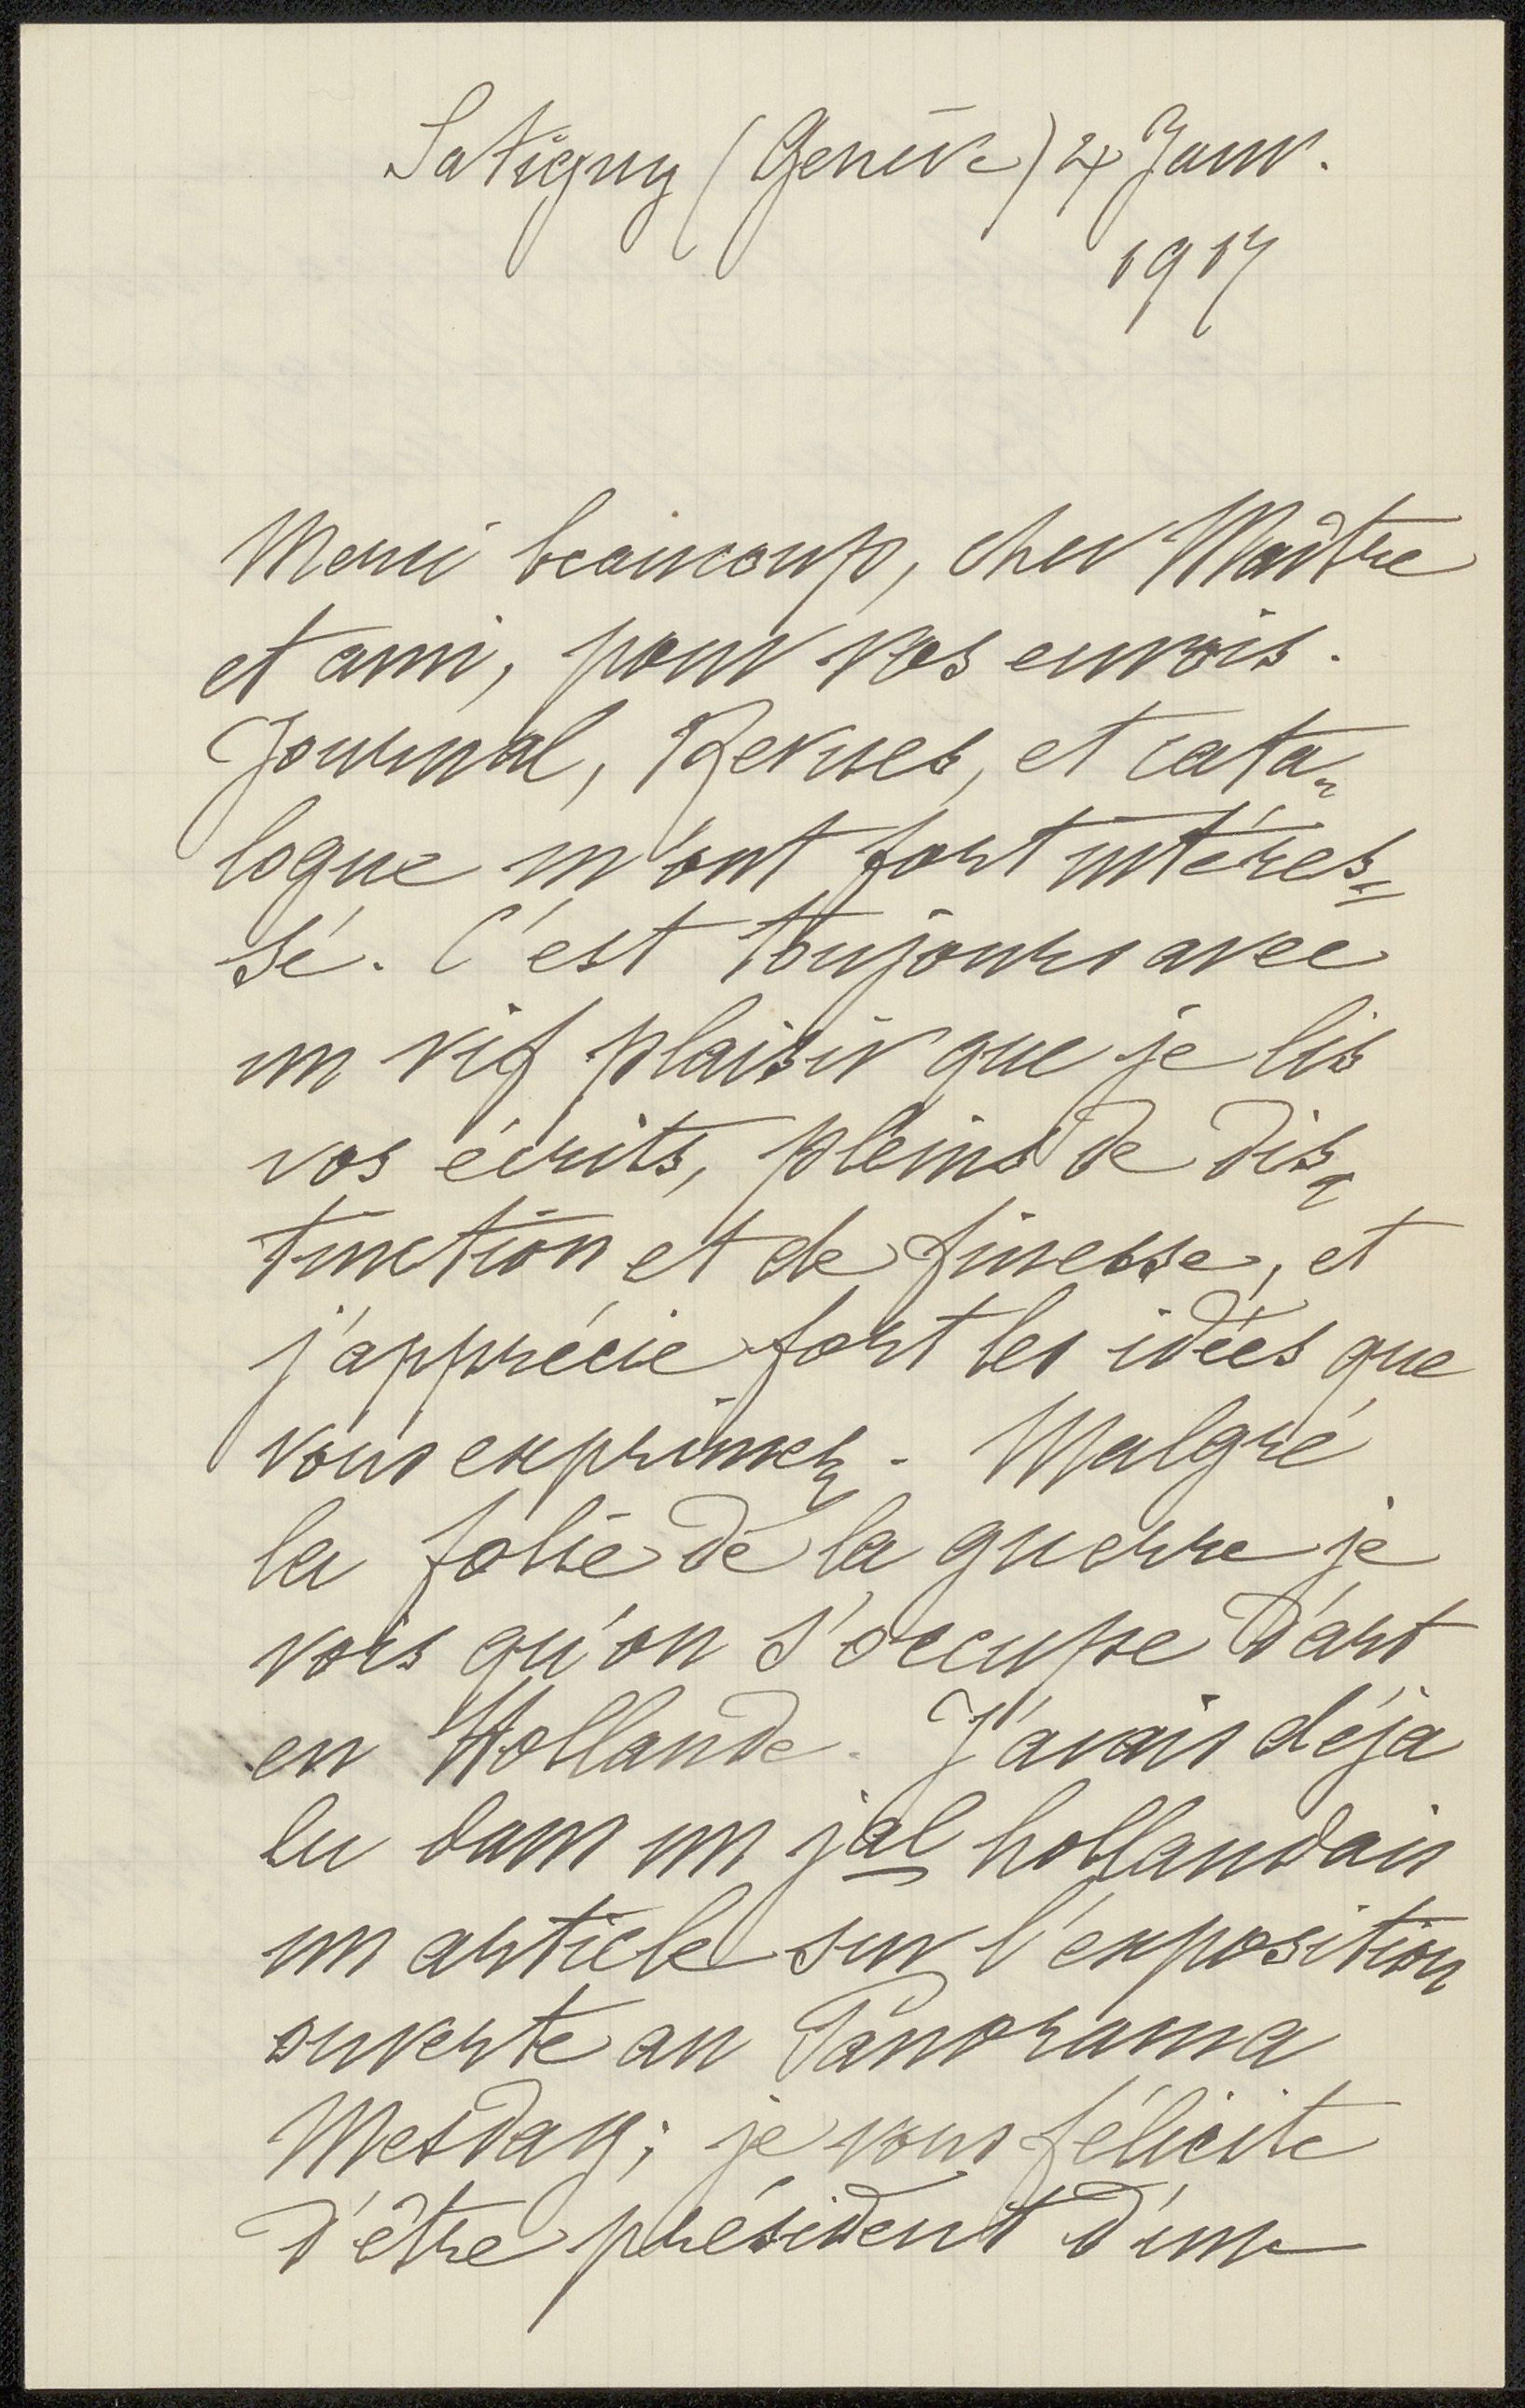 Satigny (Genève) 4 Janv.
1917
Merci beaucoup, cher Maître
et ami, pour vos envois.
Journal, Revues, et cata-
logue m'ont fort intéres-
sé. C'est toujours avec
un vif plaisir que je lis
vos écrits, pleins de dis-
tinction et de finesse, et
j'apprécie fort les idées que
vous exprimez. Malgré
la folie de la guerre je
vois qu'on s'occupe d'art
en Hollande. J'avais déja
lu dans un jal hollandais
un article sur l'exposition
ouverte au Panorama
Mesdag; je vous félicite
d'être président d'une